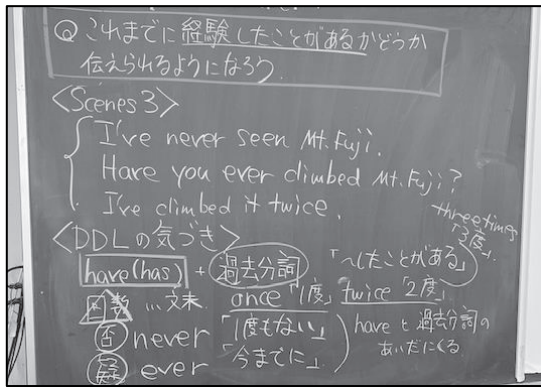 Q これまでに経験したことがあるかどうか
伝えられるようになろう.
<Scenes 3>
I've never seen Mt. Fuji.
Have you ever climbed Mt. Fuji?
I've climbed it twice.
three times
「3度」
<DDLの気づき>
have(has) + 過去分詞 「~したことがある」
回数 …文末 once「1度」 twice「2度」
否 never 「1度もない」
疑 ever 「今までに」
haveと過去分詞の
あいだにくる.